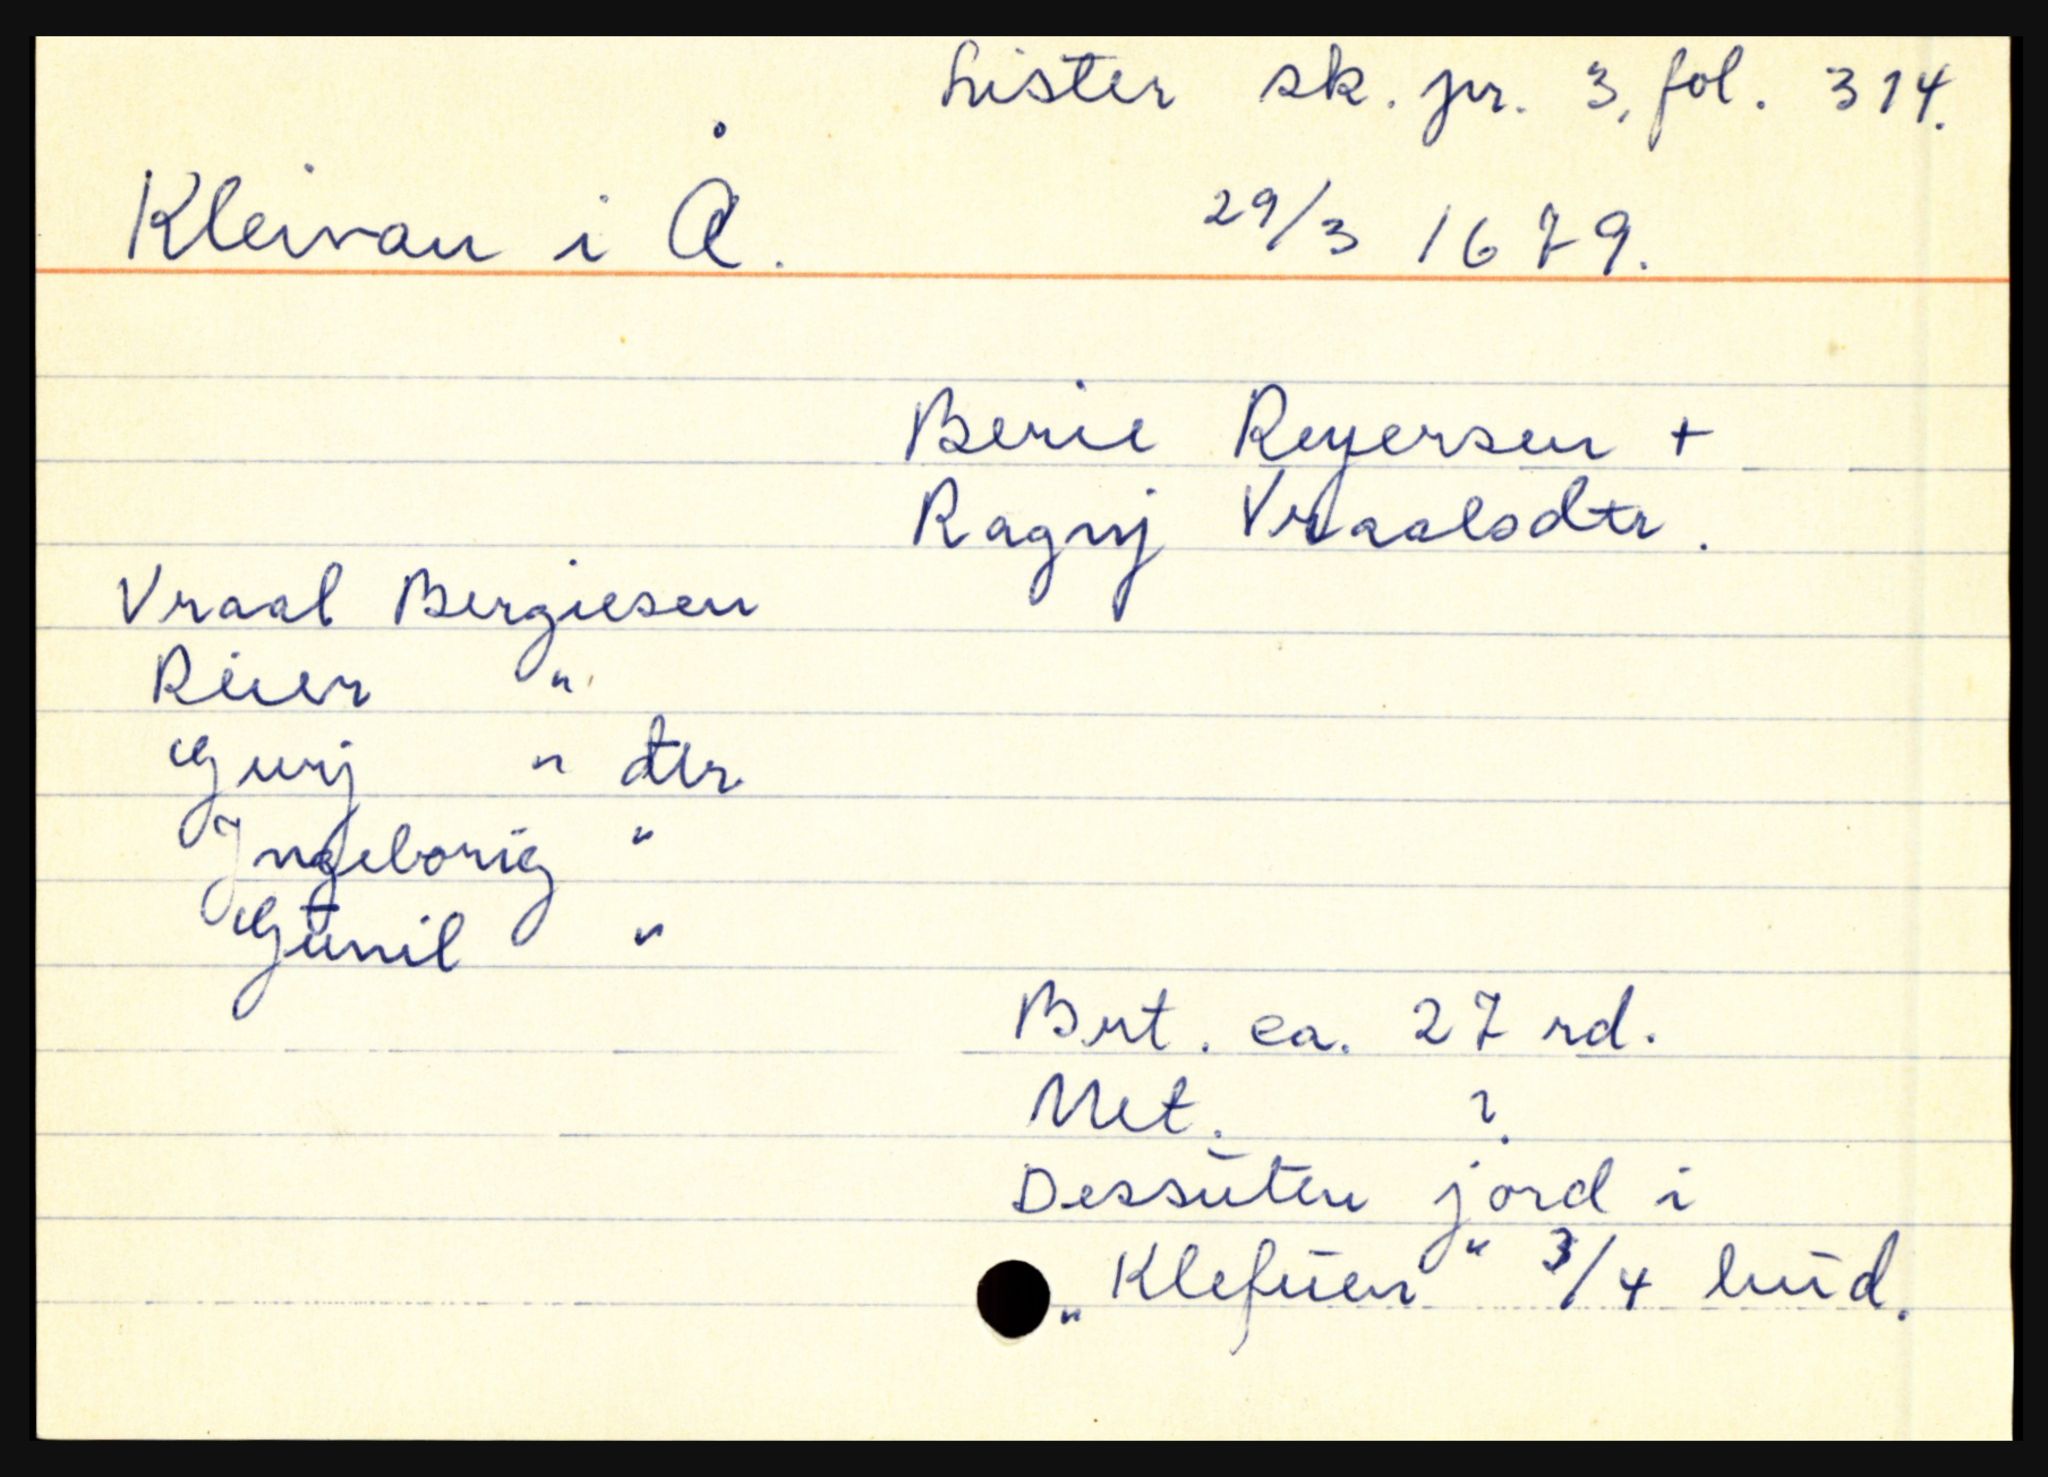 Lister sk. pr. 3, fol. 314.
Kleivan i Å. 29/3 1679.
Berie Reyersen +
Ragnj Vraalsdtr.
Vraal Bergiesen
Reier "
Gurj " dtr
Ingeborig "
Gunil "
Brt. ca. 27 rd.
Net. ?
Dessuten jord i
"Klefuen" 3/4 hud.